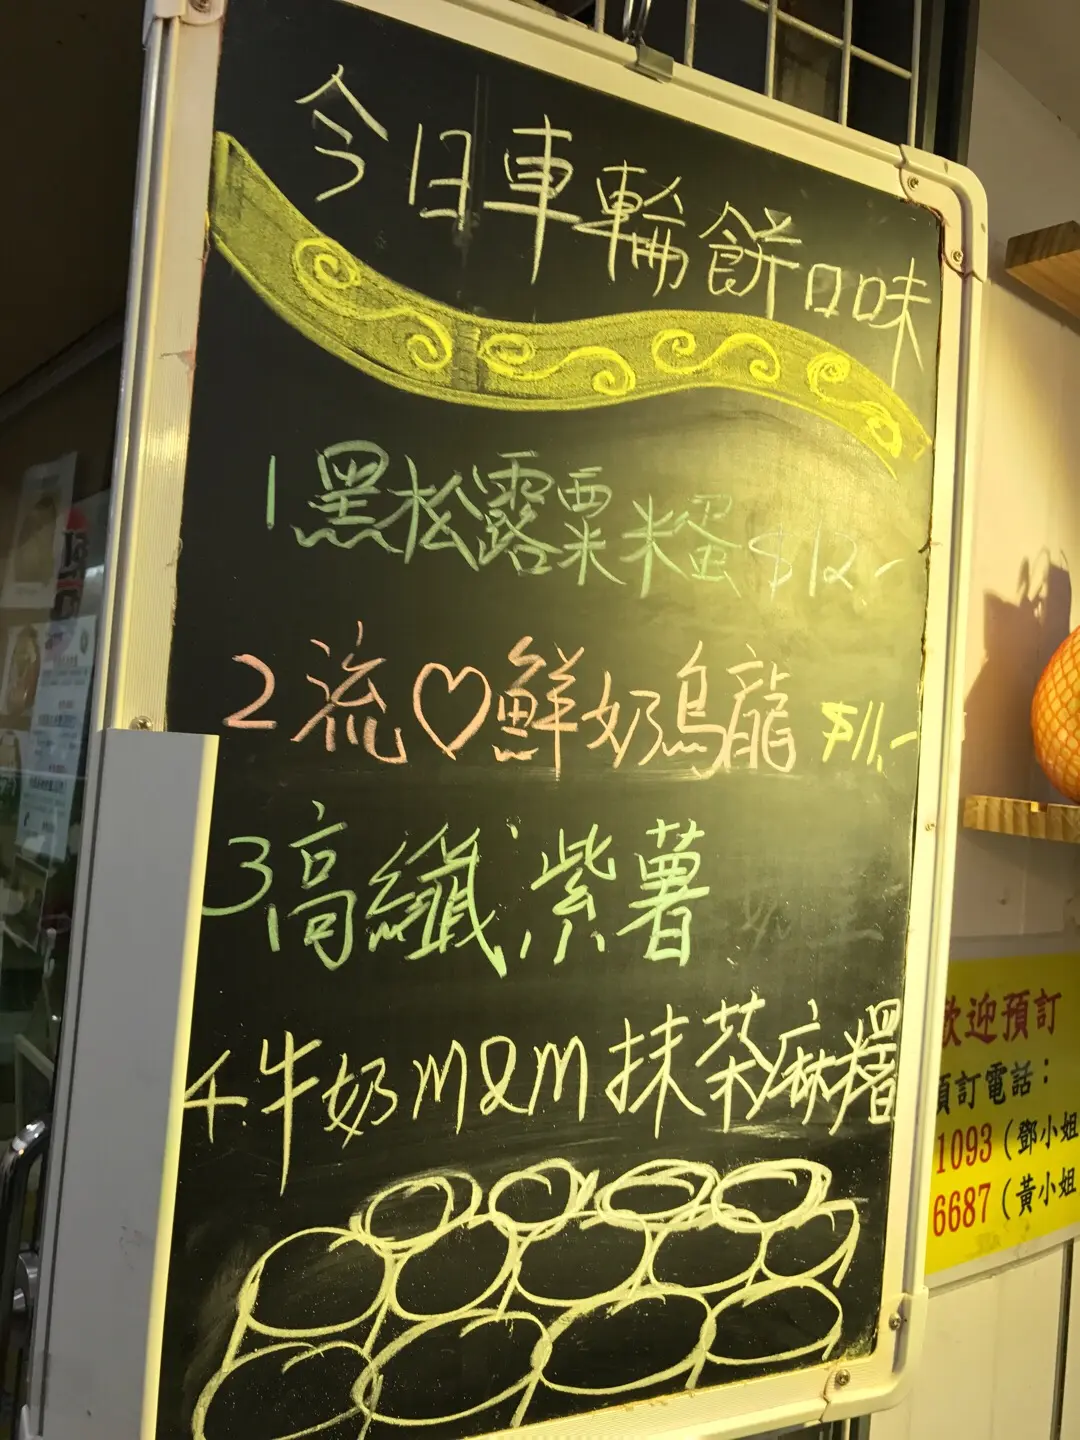 今日車輪餅口味
1 黑松露粟米蛋 $12.-
2 流♡鮮奶烏龍 $11.-
3 高纖紫薯
4. 牛奶m&m抹茶麻糬
歡迎預訂
預訂電話：
1093 (鄧小姐
6687 (黃小姐